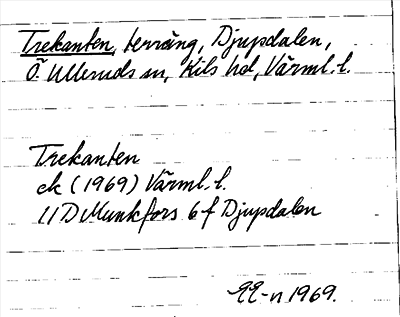 Trekanten, terräng, Djupdalen,
Ö. Ulleruds sn, Kils hd, Värml. l.
Trekanten
ek (1969) Värml. l.
11D Munkfors 6f Djupdalen
EE-n 1969.